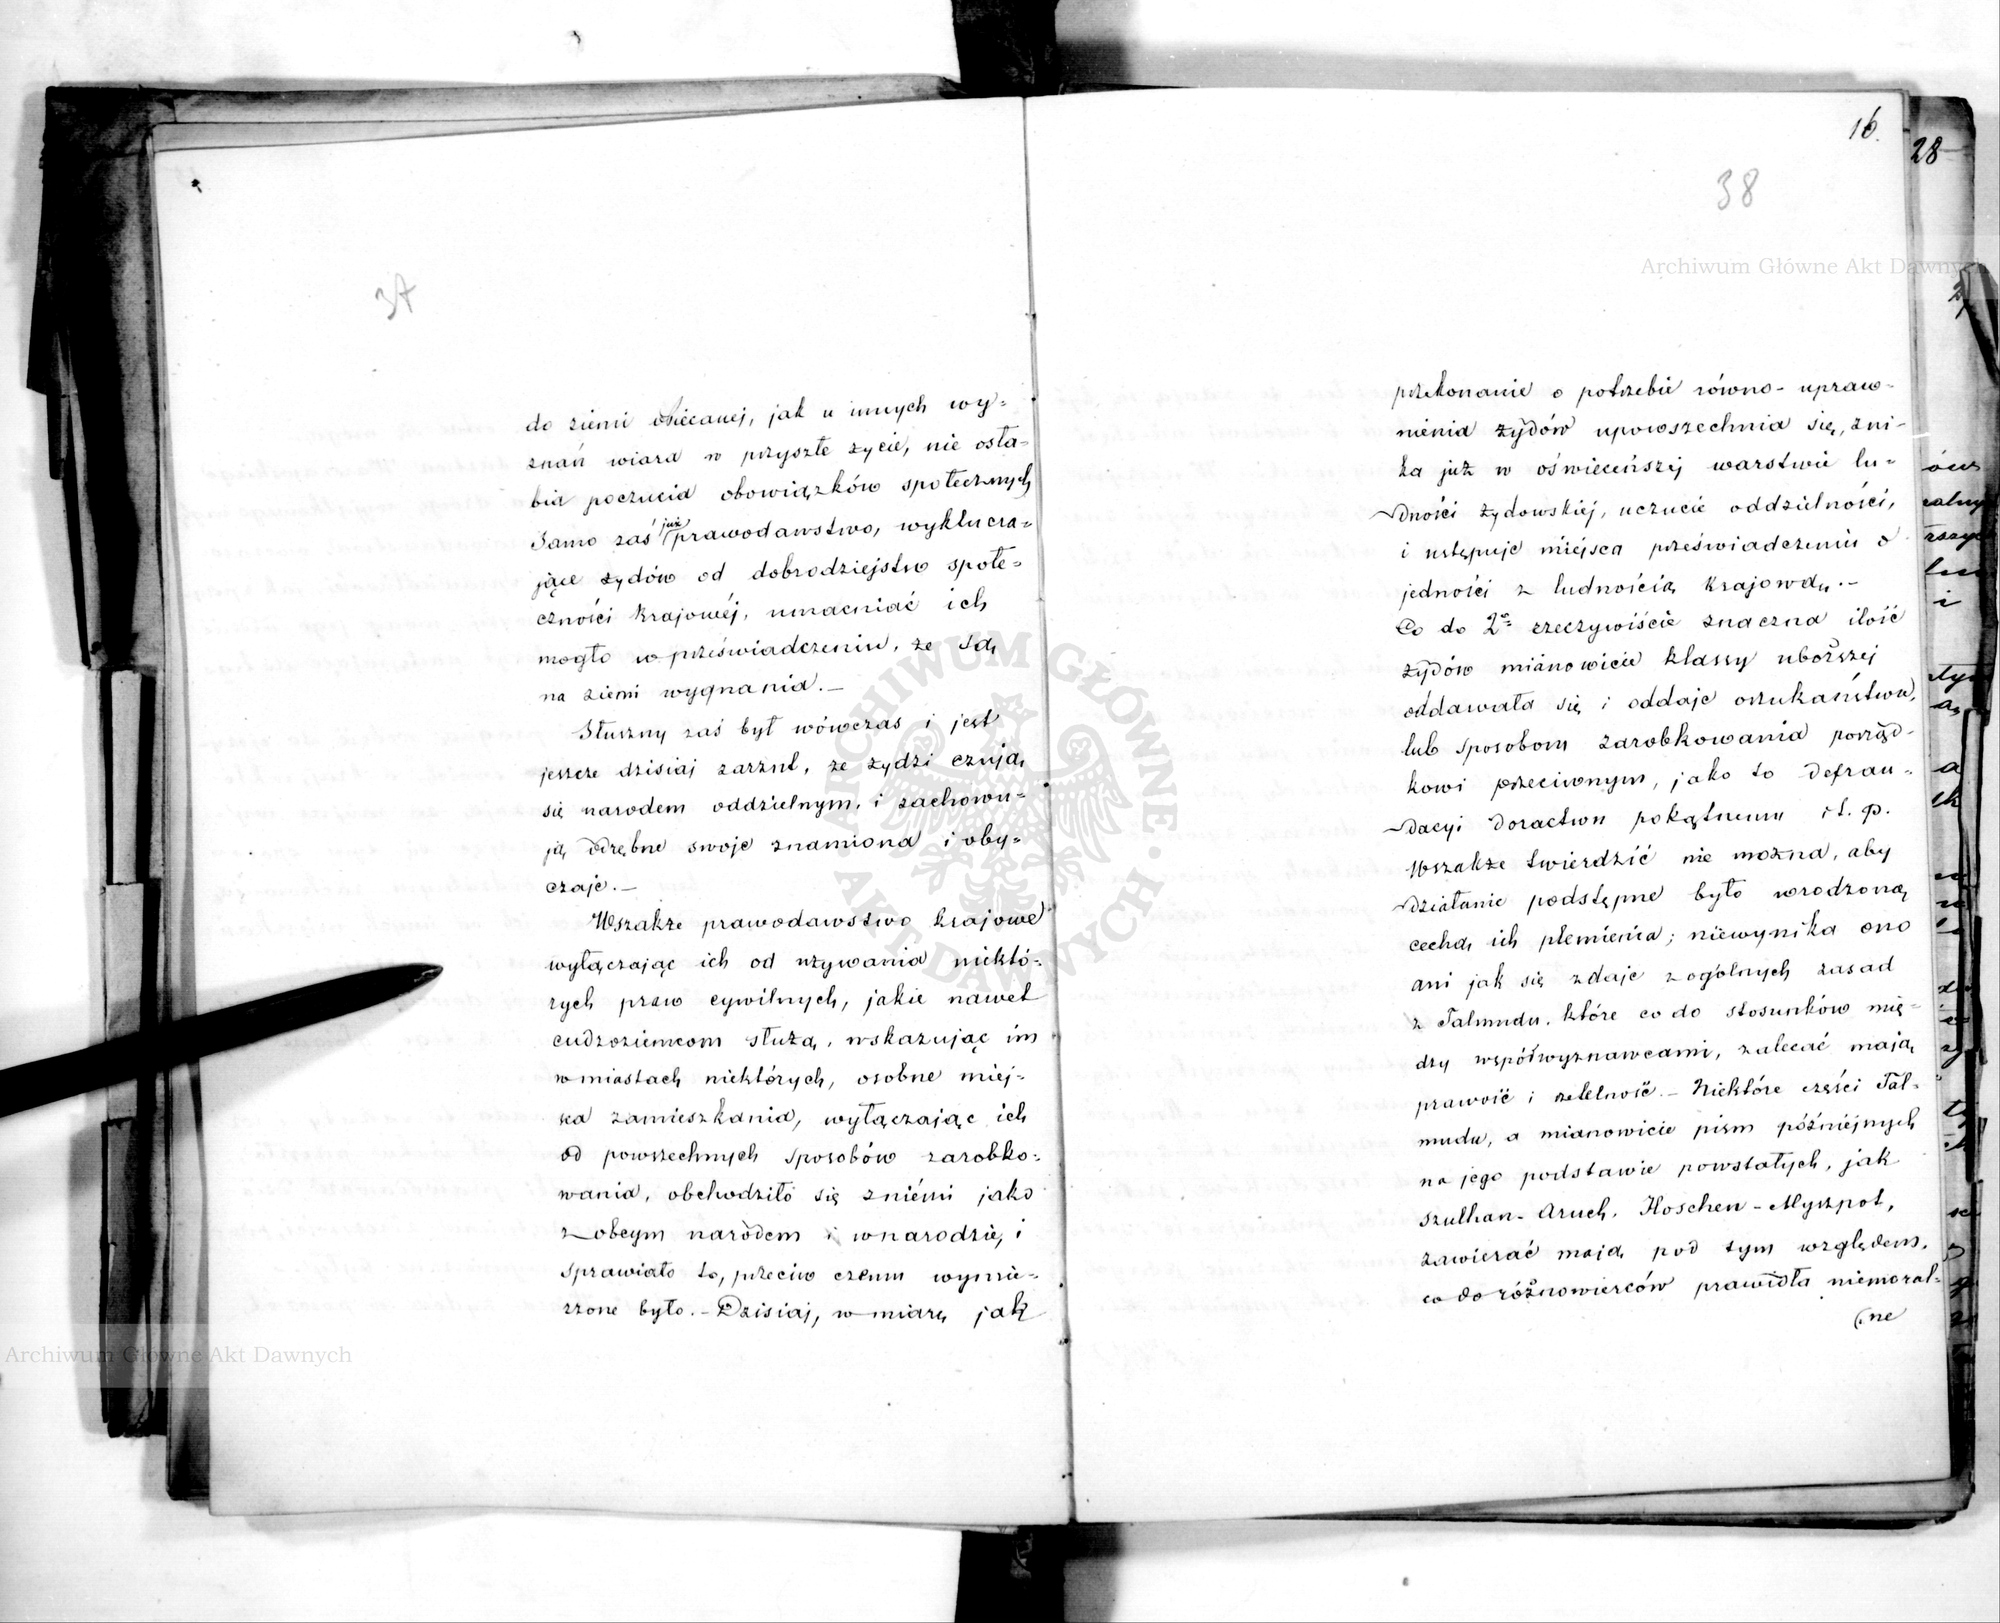 37
do ziemi obiecanej, jak u innych wy-
znań wiara w przyszłe życie, nie osła-
bia poczucia obowiązków społecznych
Samo zaś już prawodawstwo, wyklucza-
jące żydów od dobrodziejstw społe-
czności krajowéj, umacniać ich
mogło w przeświadczeniu, że są
na ziemi wygnania.—
Słuszny zaś był wówczas i jest
jeszcze dzisiaj zarzut, że żydzi czują
się narodem oddzielnym, i zachowu-
ją odrębne swoje znamiona i oby-
czaje.—
Wszakże prawodawstwo krajowe
wyłączając ich od używania niektó-
rych praw cywilnych, jakie nawet
cudzoziemcom służą, wskazując im
w miastach niektórych, osobne miej-
sca zamieszkania, wyłączając ich
od powszechnych sposobów zarobko-
wania, obchodziło się z niémi jako
z obcym narodem w narodzie, i
sprawiało to, przeciw czemu wymie-
rzone było.— Dzisiaj, w miarę jak
16.
38
28
przekonanie o potrzebie równo-upraw-
nienia żydów upowszechnia się, zni-
ka już w oświeceńszej warstwie lu-
dności żydowskiej, uczucie oddzielności,
i ustępuje miejsca przeświadczeniu o
jedności z ludnością krajową.—
Co do 2º rzeczywiście znaczna ilość
żydów mianowicie klassy uboższej
oddawała się i oddaje oszukaństwu,
lub sposobom zarobkowania porząd-
kowi przeciwnym, jako to defrau-
dacyi doractwu pokątnemu i t. p.
Wszakże twierdzić nie można, aby
działanie podstępne było wrodzoną
cechą ich plemienia; niewynika ono
ani jak się zdaje z ogólnych zasad
z Talmudu, które co do stosunków mię-
dzy współwyznawcami, zalecać mają
prawość i rzetelność.— Niektóre części Tal-
mudu, a mianowicie pism późniéjnych
na jego podstawie powstałych, jak
Szulhan-Aruch, Hoschen-Myszpot,
zawierać mają pod tym względem,
co do różnowierców prawidła niemoral-
(ne
Archiwum Główne Akt Dawnych
Archiwum Główne Akt Dawnych
ARCHIWUM GŁÓWNE · AKT DAWNYCH ·